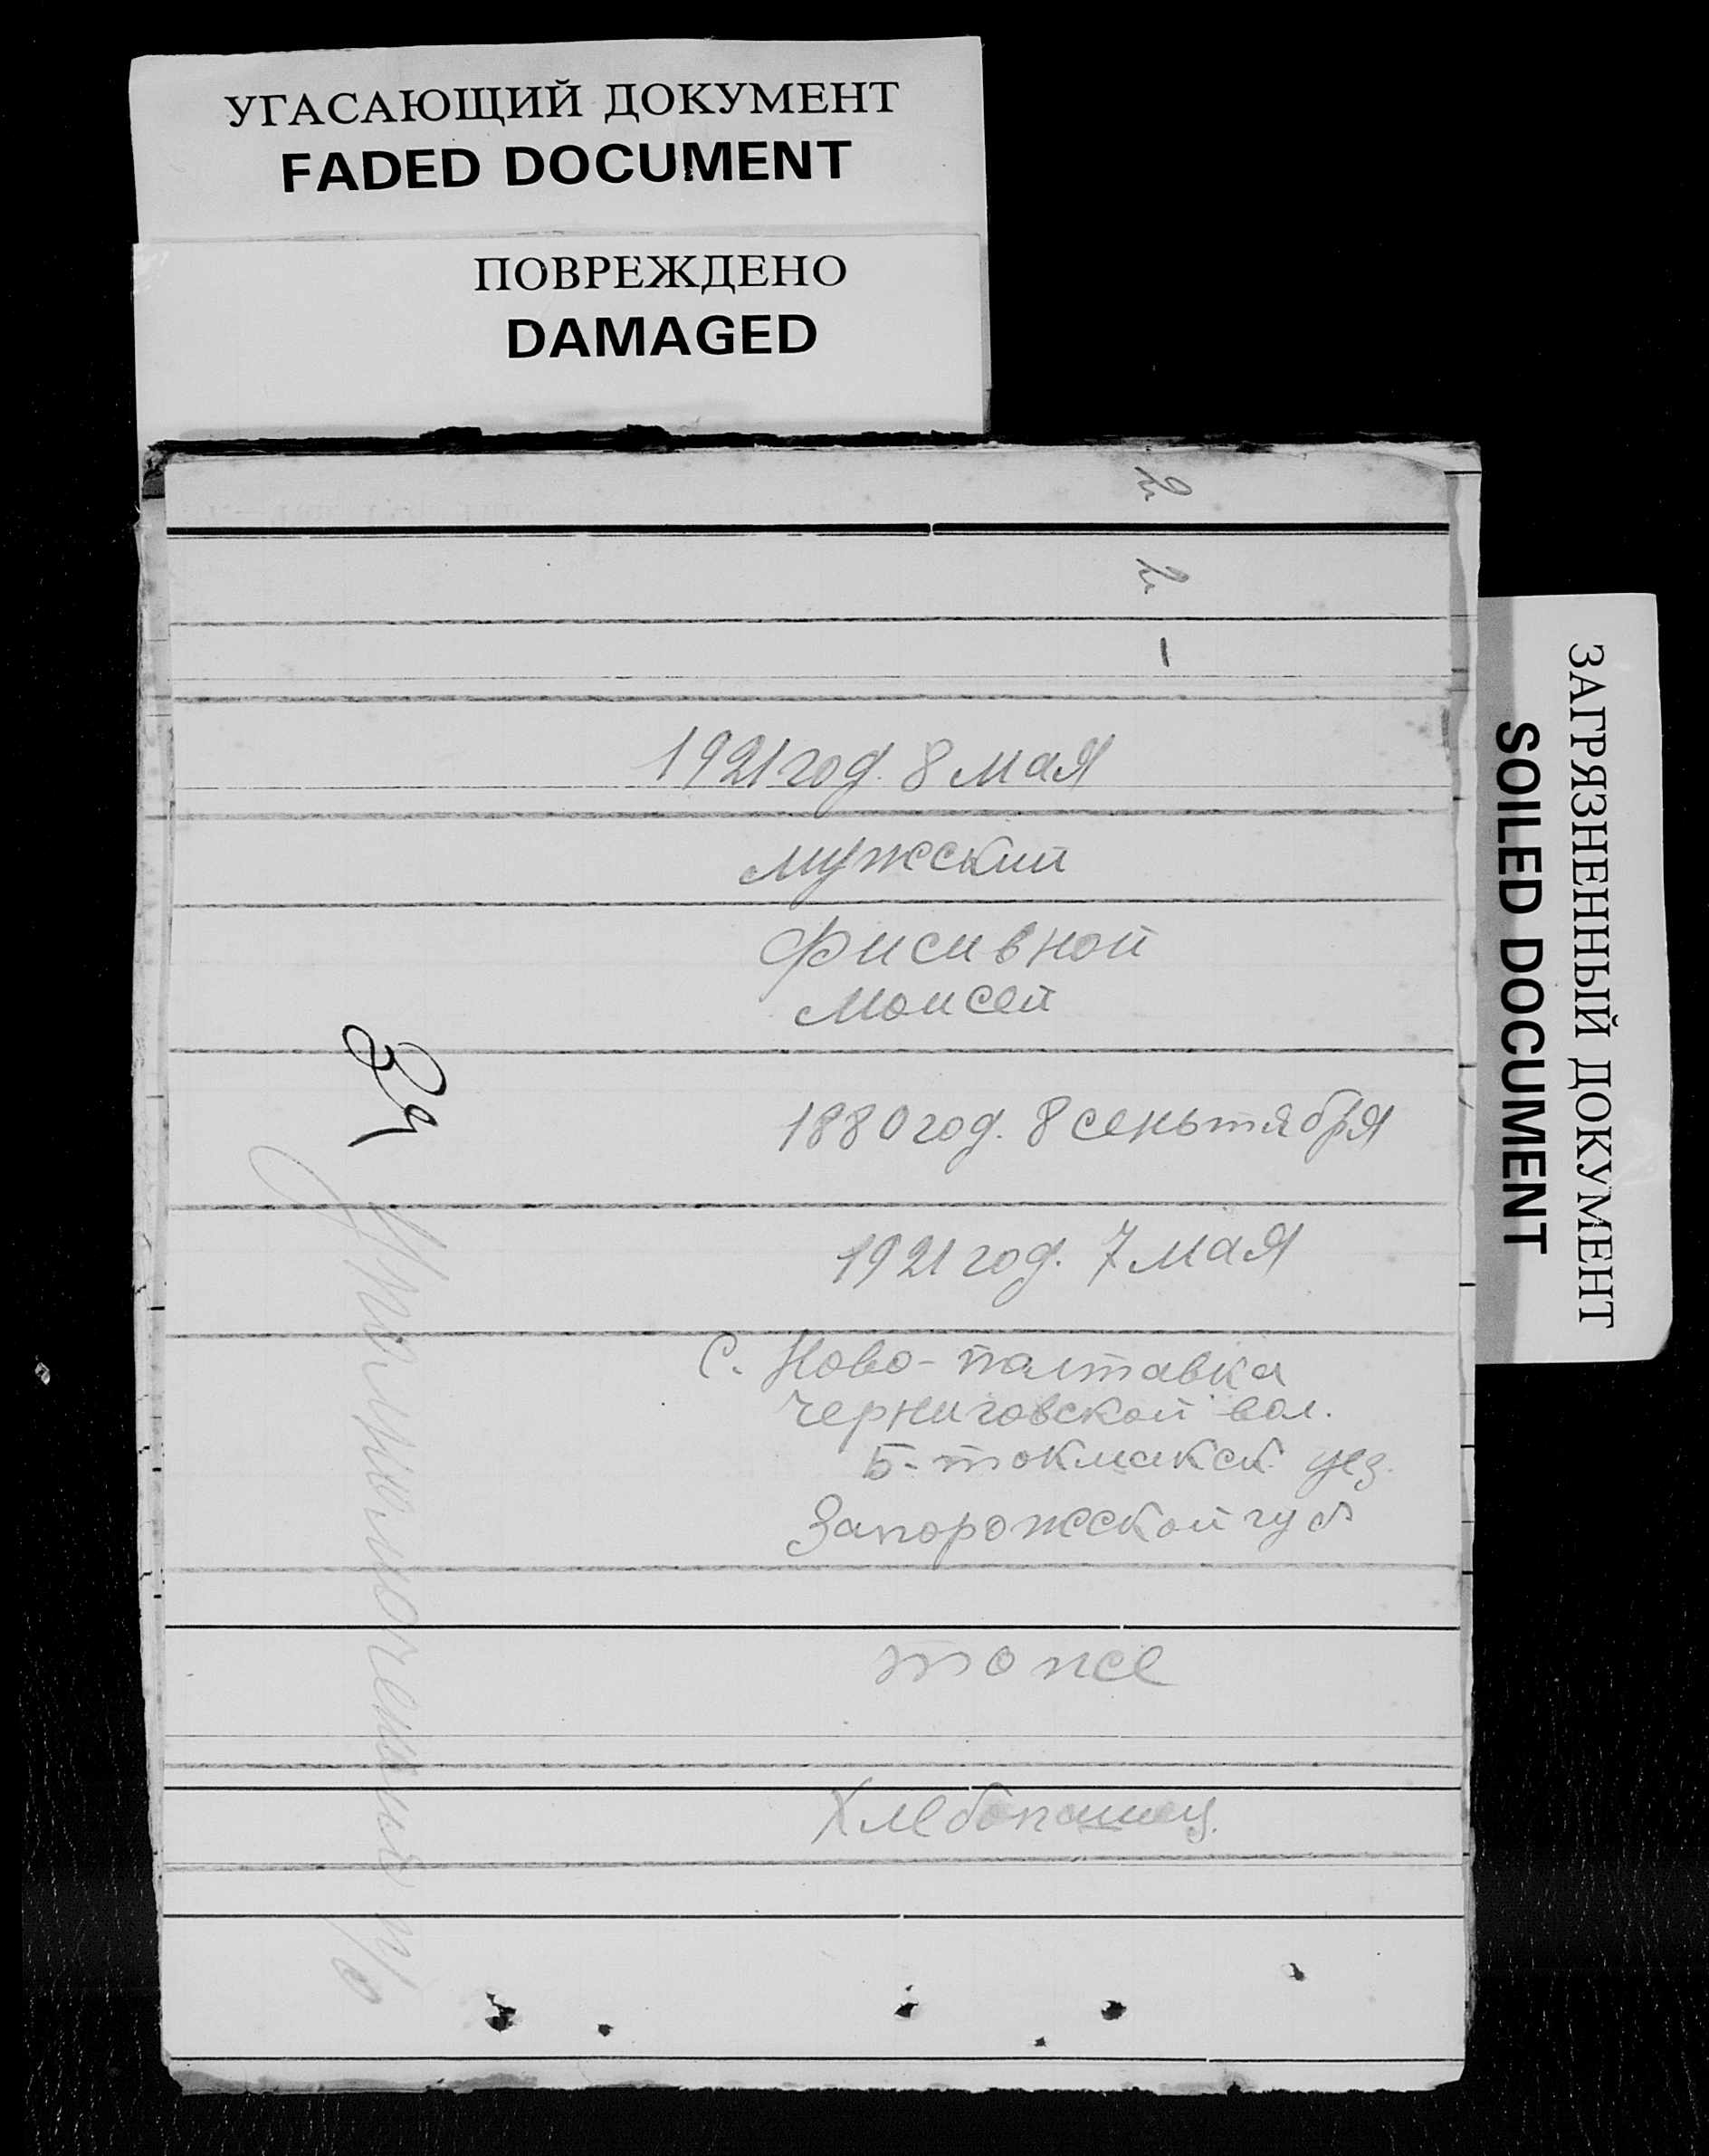 УГАСАЮЩИЙ ДОКУМЕНТ
FADED DOCUMENT
ПОВРЕЖДЕНО
DAMAGED
2
2
-
1921 год. 8 мая
мужский
Фисивной
Моисей
1880 год. 8 сеньтября
1921 год. 7 мая
С. Ново-палтавка
Черниговской вол.
Б-токмакск уез.
Запорожской губ
тоже
Хлебопашец.
ЗАГРЯЗНЕННЫЙ ДОКУМЕНТ
SOILED DOCUMENT